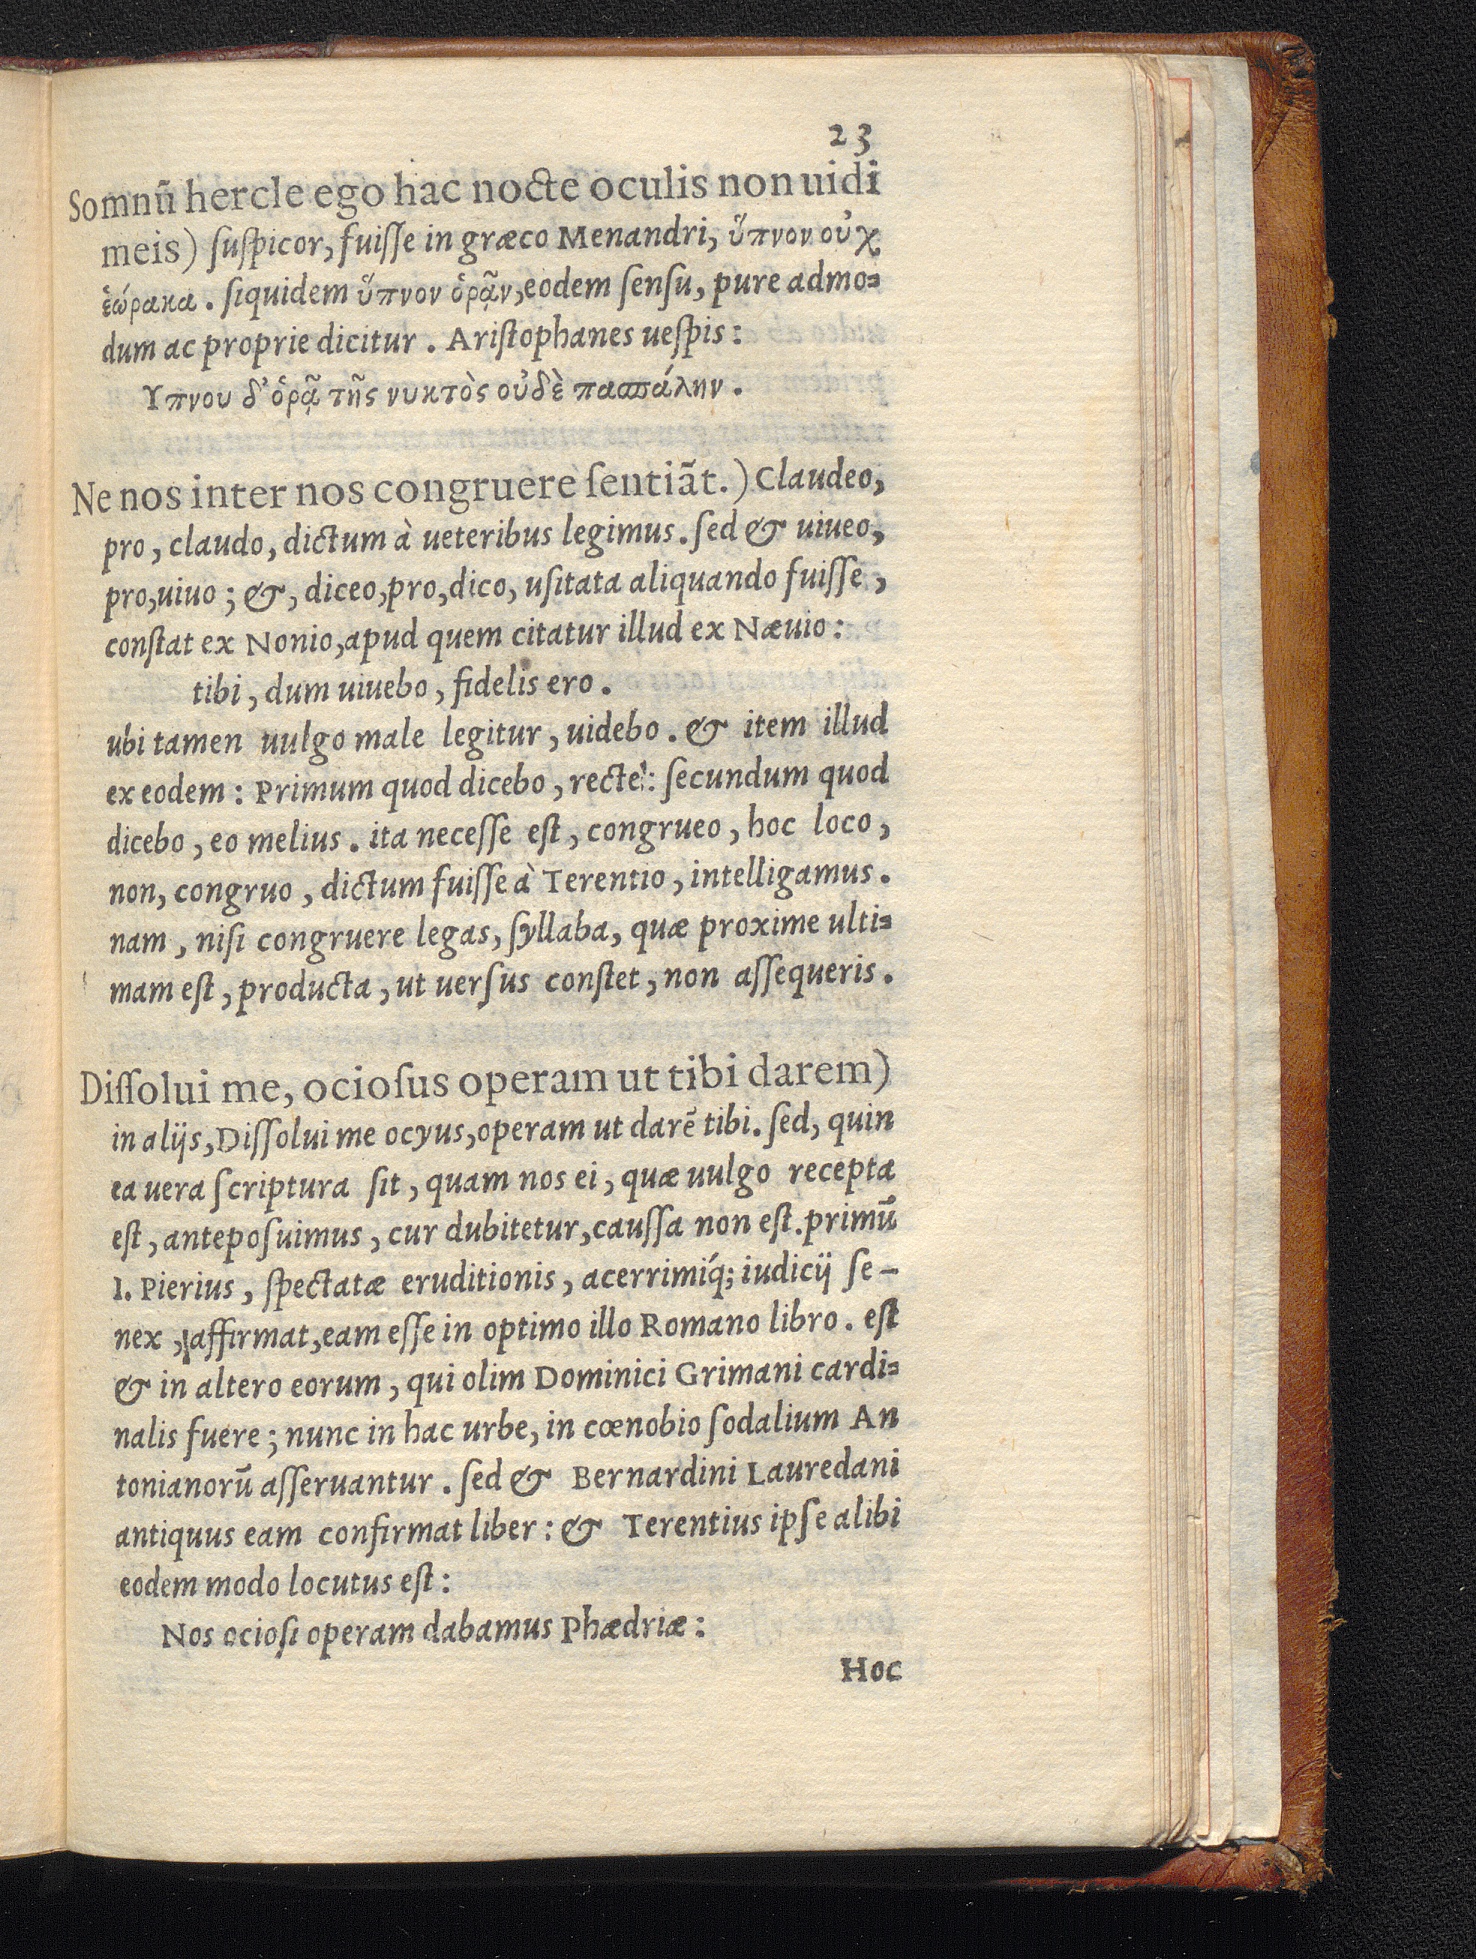 23
Somnũ hercle ego hac nocte oculis non uidi
meis) suspicor, fuisse in græco Menandri, ὕπνον οὐχ
ἑώρακα. siquidem ὕπνον ὁρᾷν, eodem sensu, pure admo-
dum ac proprie dicitur. Aristophanes uespis:
Υπνου δ' ὁρᾷ τῆς νυκτὸς οὐδὲ πασπάλην.
Ne nos inter nos congruere sentiãt.) Claudeo,
pro, claudo, dictum à ueteribus legimus. sed & uiueo,
pro, uiuo; &, diceo, pro, dico, usitata aliquando fuisse,
constat ex Nonio, apud quem citatur illud ex Næuio:
tibi, dum uiuebo, fidelis ero.
ubi tamen uulgo male legitur, uidebo. & item illud
ex eodem: Primum quod dicebo, recte: secundum quod
dicebo, eo melius. ita necesse est, congrueo, hoc loco,
non, congruo, dictum fuisse à Terentio, intelligamus.
nam, nisi congruere legas, syllaba, quæ proxime ulti-
mam est, producta, ut uersus constet, non assequeris.
Dissolui me, ociosus operam ut tibi darem)
in alijs, Dissolui me ocyus, operam ut darẽ tibi. sed, quin
ea uera scriptura sit, quam nos ei, quæ uulgo recepta
est, anteposuimus, cur dubitetur, caussa non est. primũ
I. Pierius, spectatæ eruditionis, acerrimiq́; iudicij se-
nex, affirmat, eam esse in optimo illo Romano libro. est
& in altero eorum, qui olim Dominici Grimani cardi-
nalis fuere; nunc in hac urbe, in cœnobio sodalium An
tonianorũ asseruantur. sed & Bernardini Lauredani
antiquus eam confirmat liber: & Terentius ipse alibi
eodem modo locutus est:
Nos ociosi operam dabamus Phædriæ:
Hoc